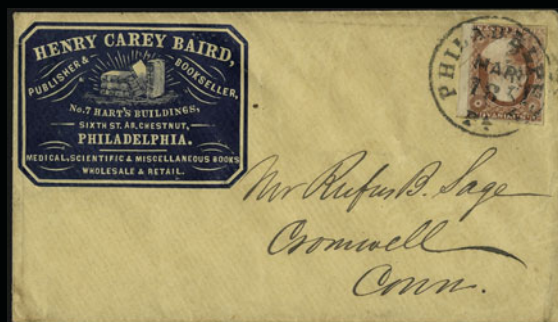 HENRY CAREY BAIRD,
PUBLISHER & BOOKSELLER,
No. 7 HART'S BUILDINGS,
SIXTH ST. AB. CHESTNUT,
PHILADELPHIA.
MEDICAL, SCIENTIFIC & MISCELLANEOUS BOOKS
WHOLESALE & RETAIL.
MAR
Mr Rufus B. Sage
Cromwell
Conn.